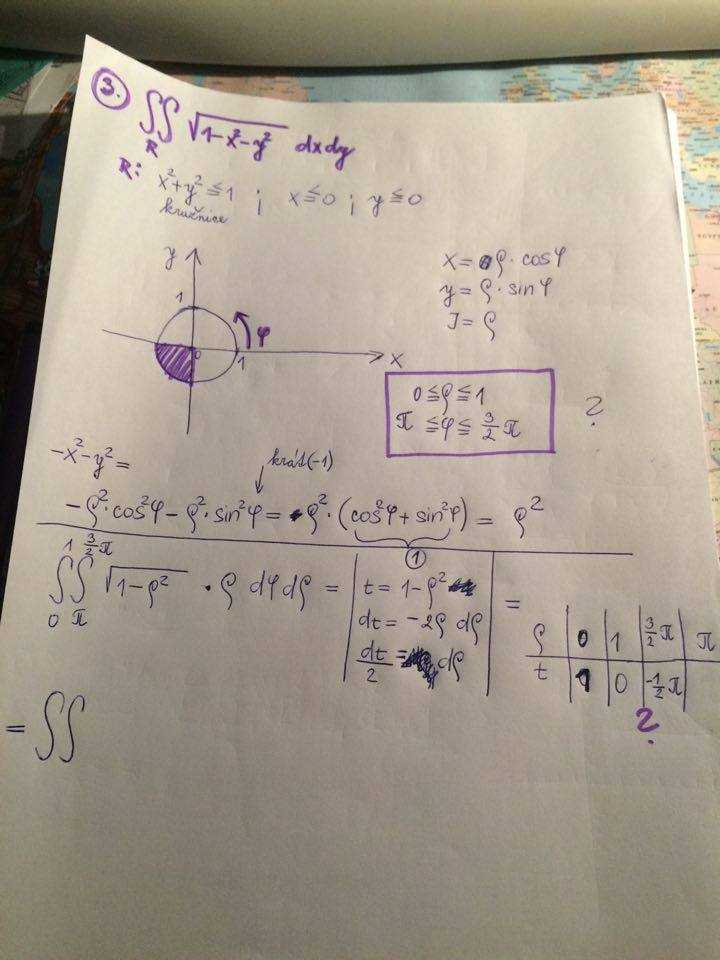 3. ∬ √(1-x²-y²) dxdy
R
R: x²+y² ≦ 1 ; x ≦ 0 ; y ≦ 0
kružnice
y
1
φ
0
1
x
x = ρ · cosφ
y = ρ · sinφ
J = ρ
0 ≦ ρ ≦ 1
π ≦ φ ≦ 3/2 π
?
-x²-y² =
krát (-1)
-ρ²·cos²φ - ρ²·sin²φ = -ρ²·(cos²φ + sin²φ) = ρ²
1
∫₀¹ ∫_π^(3/2 π) √(1-ρ²) · ρ dφ dρ = | t = 1-ρ² | =
dt = -2ρ dρ
dt/2 = dρ
ρ | 0 | 1 | 3/2 π | π
t | 1 | 0 | -1/2 π |
?
= ∬